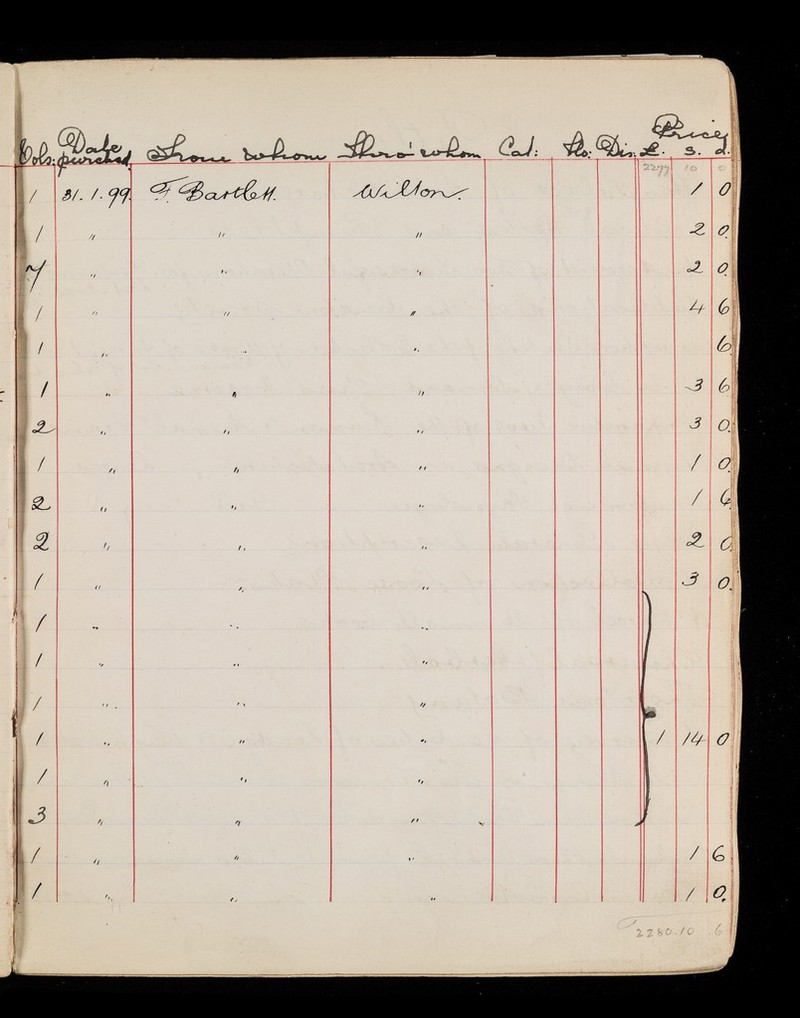 Vols: Date purchsd. From whom Thro' whom Cat: No: Dis: Price £. s. d.
2277 10 0
1 31.1.99. F. Bartlett. Wilton. 1 0
1 " " " 2 0.
7 " " " 2 0.
1 " " " 4 6
1 " " " 6.
1 " " " 3 6
2 " " " 3 0.
1 " " " 1 0.
2 " " " 1 6
2 " " " 2 0
1 " " " 3 0.
1 " " "
1 " " "
1 " " "
1 " " " 1 14 0
1 " " "
3 " " "
1 " " " 1 6
1 " " " 1 0.
2280.10 6